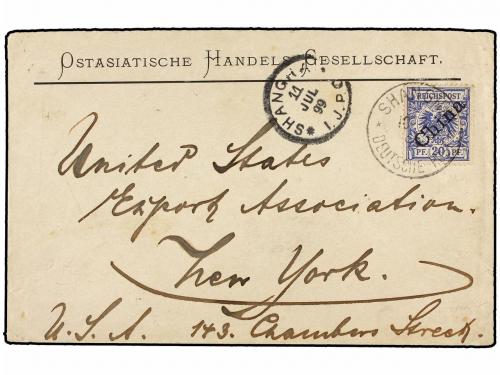 OSTASIATISCHE HANDELS GESELLSCHAFT.
SHANGHAI
11
JUL
99
I.J.P.O
SHA
DEUTSCHE
REICHSPOST
China
PF. 20 PF.
United States
Export Association.
New York.
U.S.A. 143. Chambers Street.